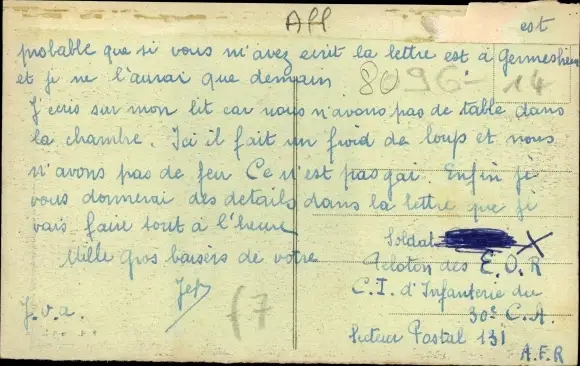 All
est
probable que si vous m'avez ecrit la lettre est à Germesheim
et je ne l'aurai que demain
8096-14
J'ecris sur mon lit car nous n'avons pas de table dans
la chambre. Ici il fait un froid de loup et nous
n'avons pas de feu Ce n'est pas gai. Enfin je
vous donnerai des details dans la lettre que je
vais faire tout à l'heure
Mille gros baisers de votre
J.v.a.
(7
Soldat X
Peloton des E.O.R
C.I. d'Infanterie du
30e C.A.
Secteur Postal 131
A.F.R